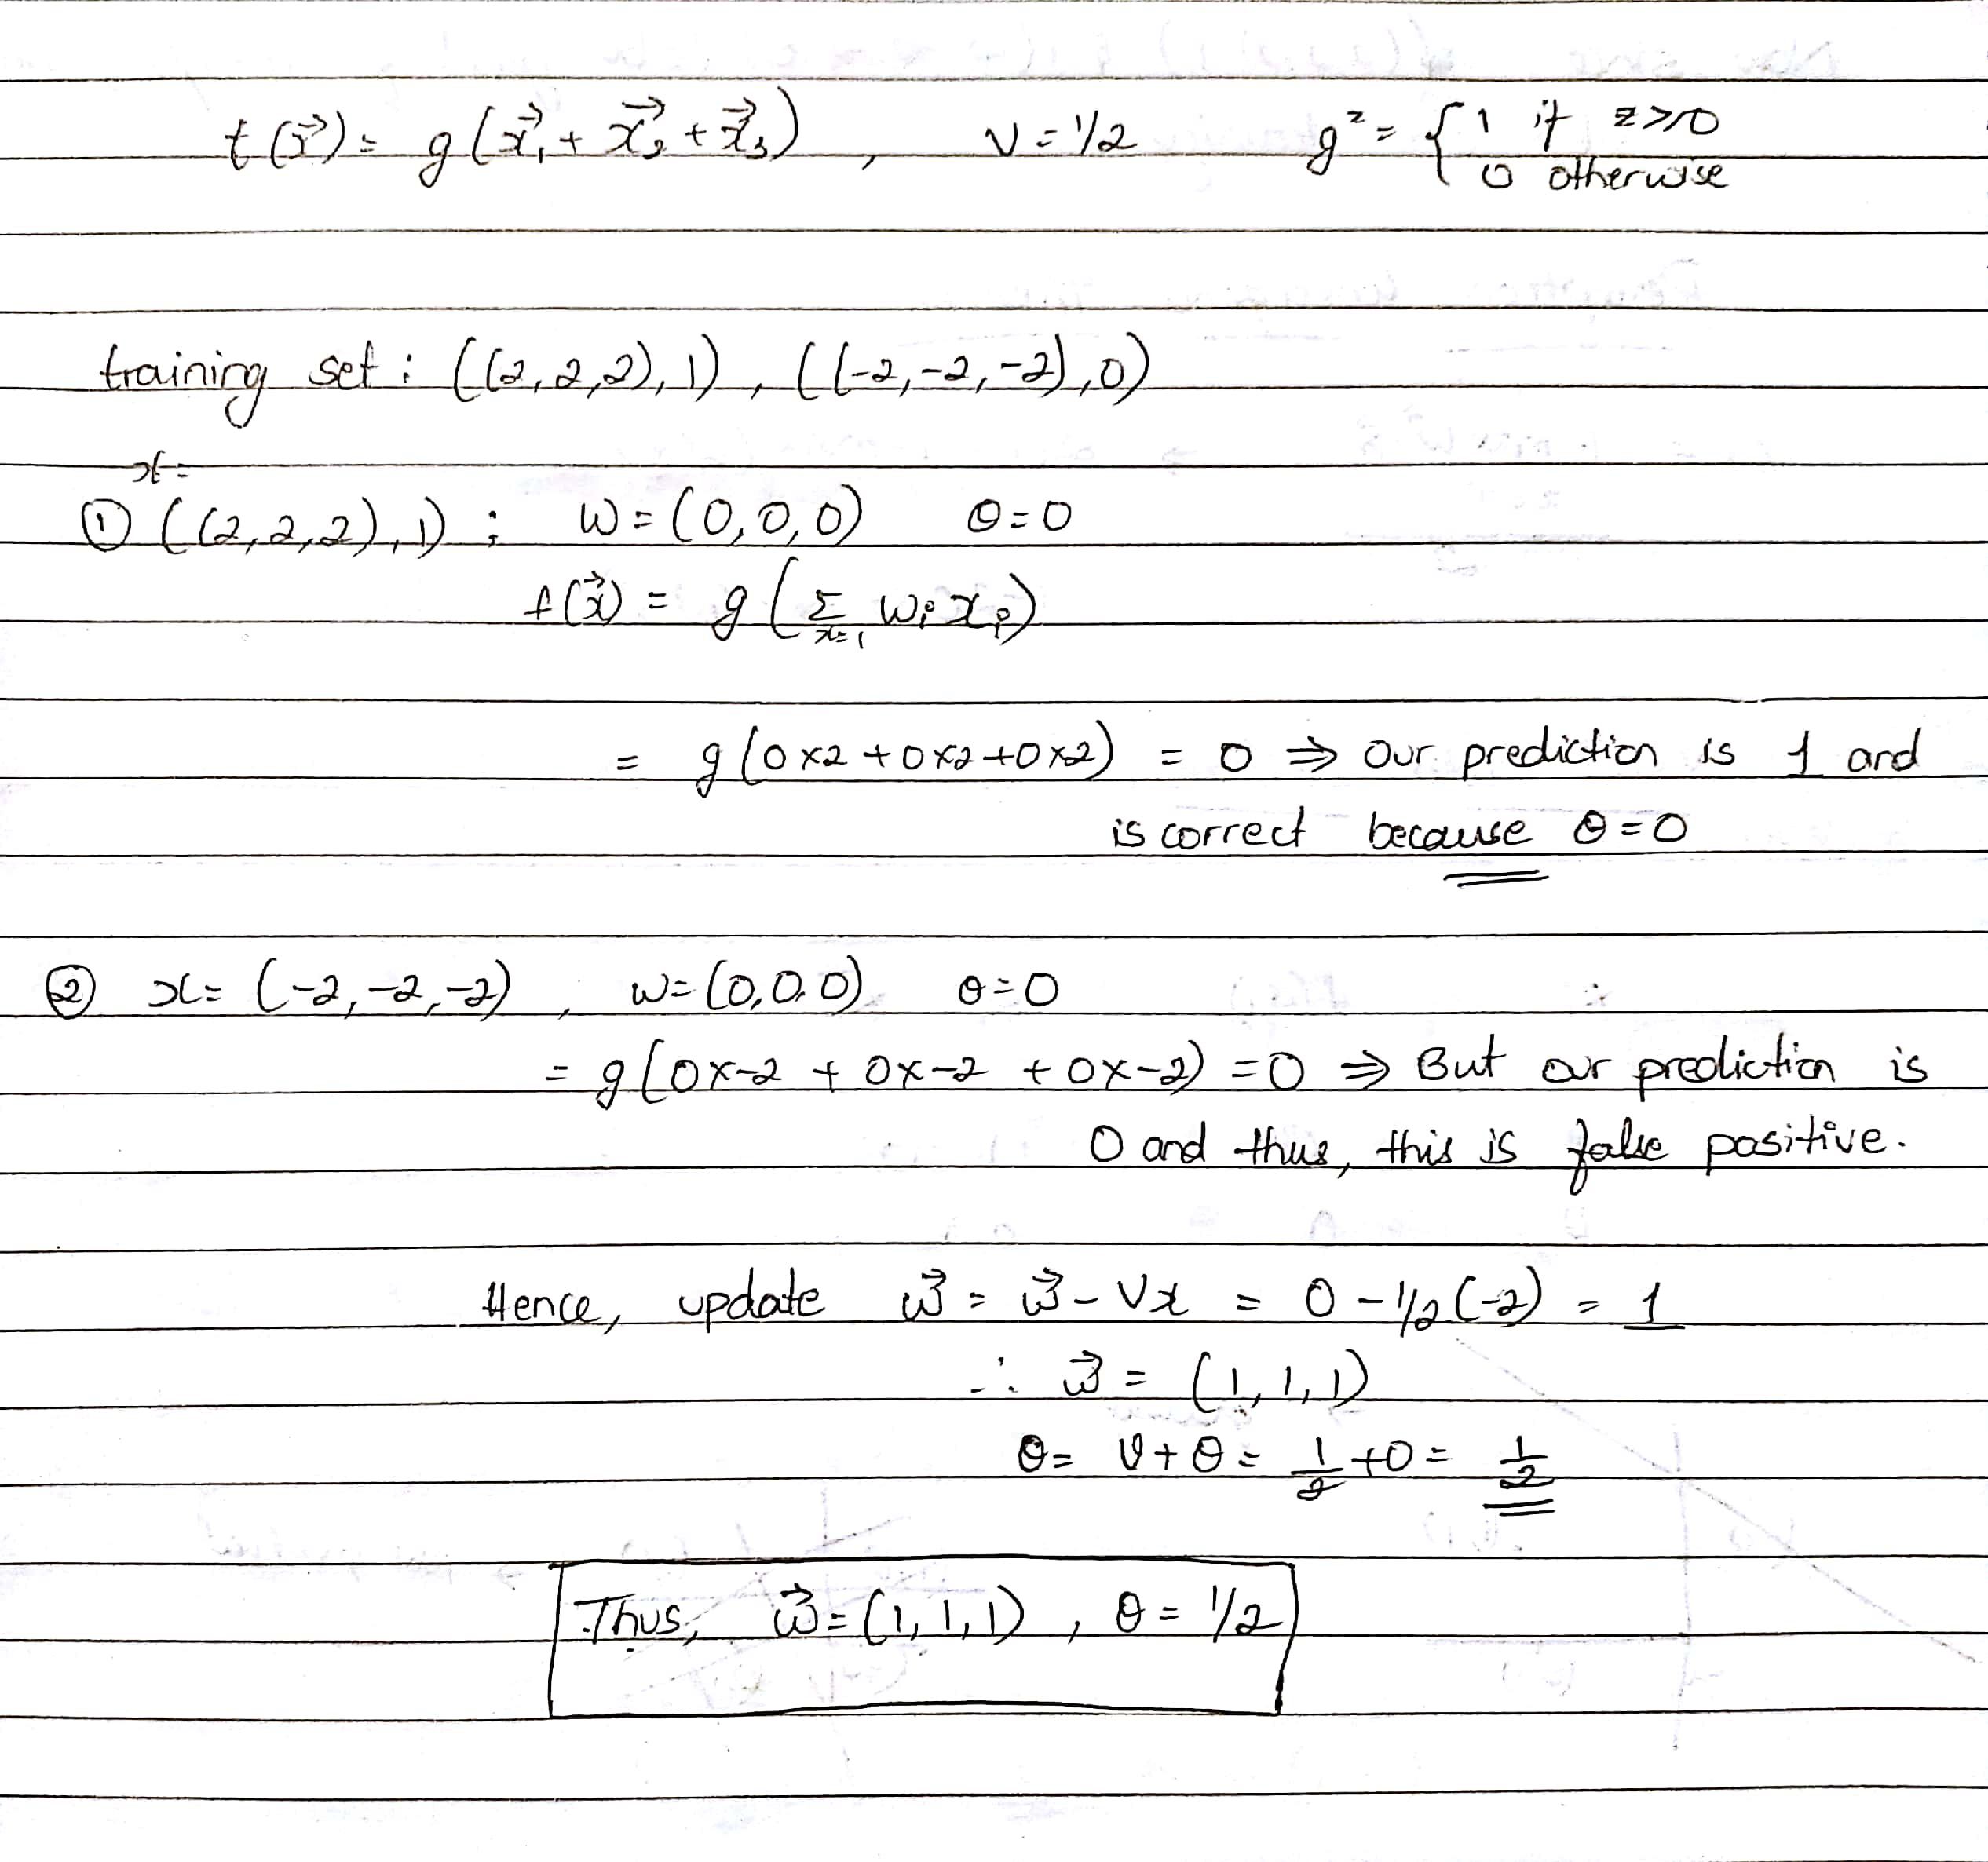 t(x⃗) = g(x⃗₁ + x⃗₂ + x⃗₃) , ν = 1/2 gᶻ = { 1 if z ≥ 0
0 otherwise
training set : ((2,2,2),1) , ((-2,-2,-2),0)
x =
① ((2,2,2),1) ; w = (0,0,0) θ = 0
f(x⃗) = g(Σ_{x=1} wᵢ xᵢ)
= g(0×2 + 0×2 + 0×2) = 0 ⇒ Our prediction is 1 and
is correct because θ = 0
② x = (-2,-2,-2) , w = (0,0,0) θ = 0
= g(0×-2 + 0×-2 + 0×-2) = 0 ⇒ But our prediction is
0 and thus, this is false positive.
Hence, update w⃗ = w⃗ - νx = 0 - 1/2(-2) = 1
∴ w⃗ = (1,1,1)
θ = ν + θ = 1/2 + 0 = 1/2
Thus, w⃗ = (1,1,1) , θ = 1/2